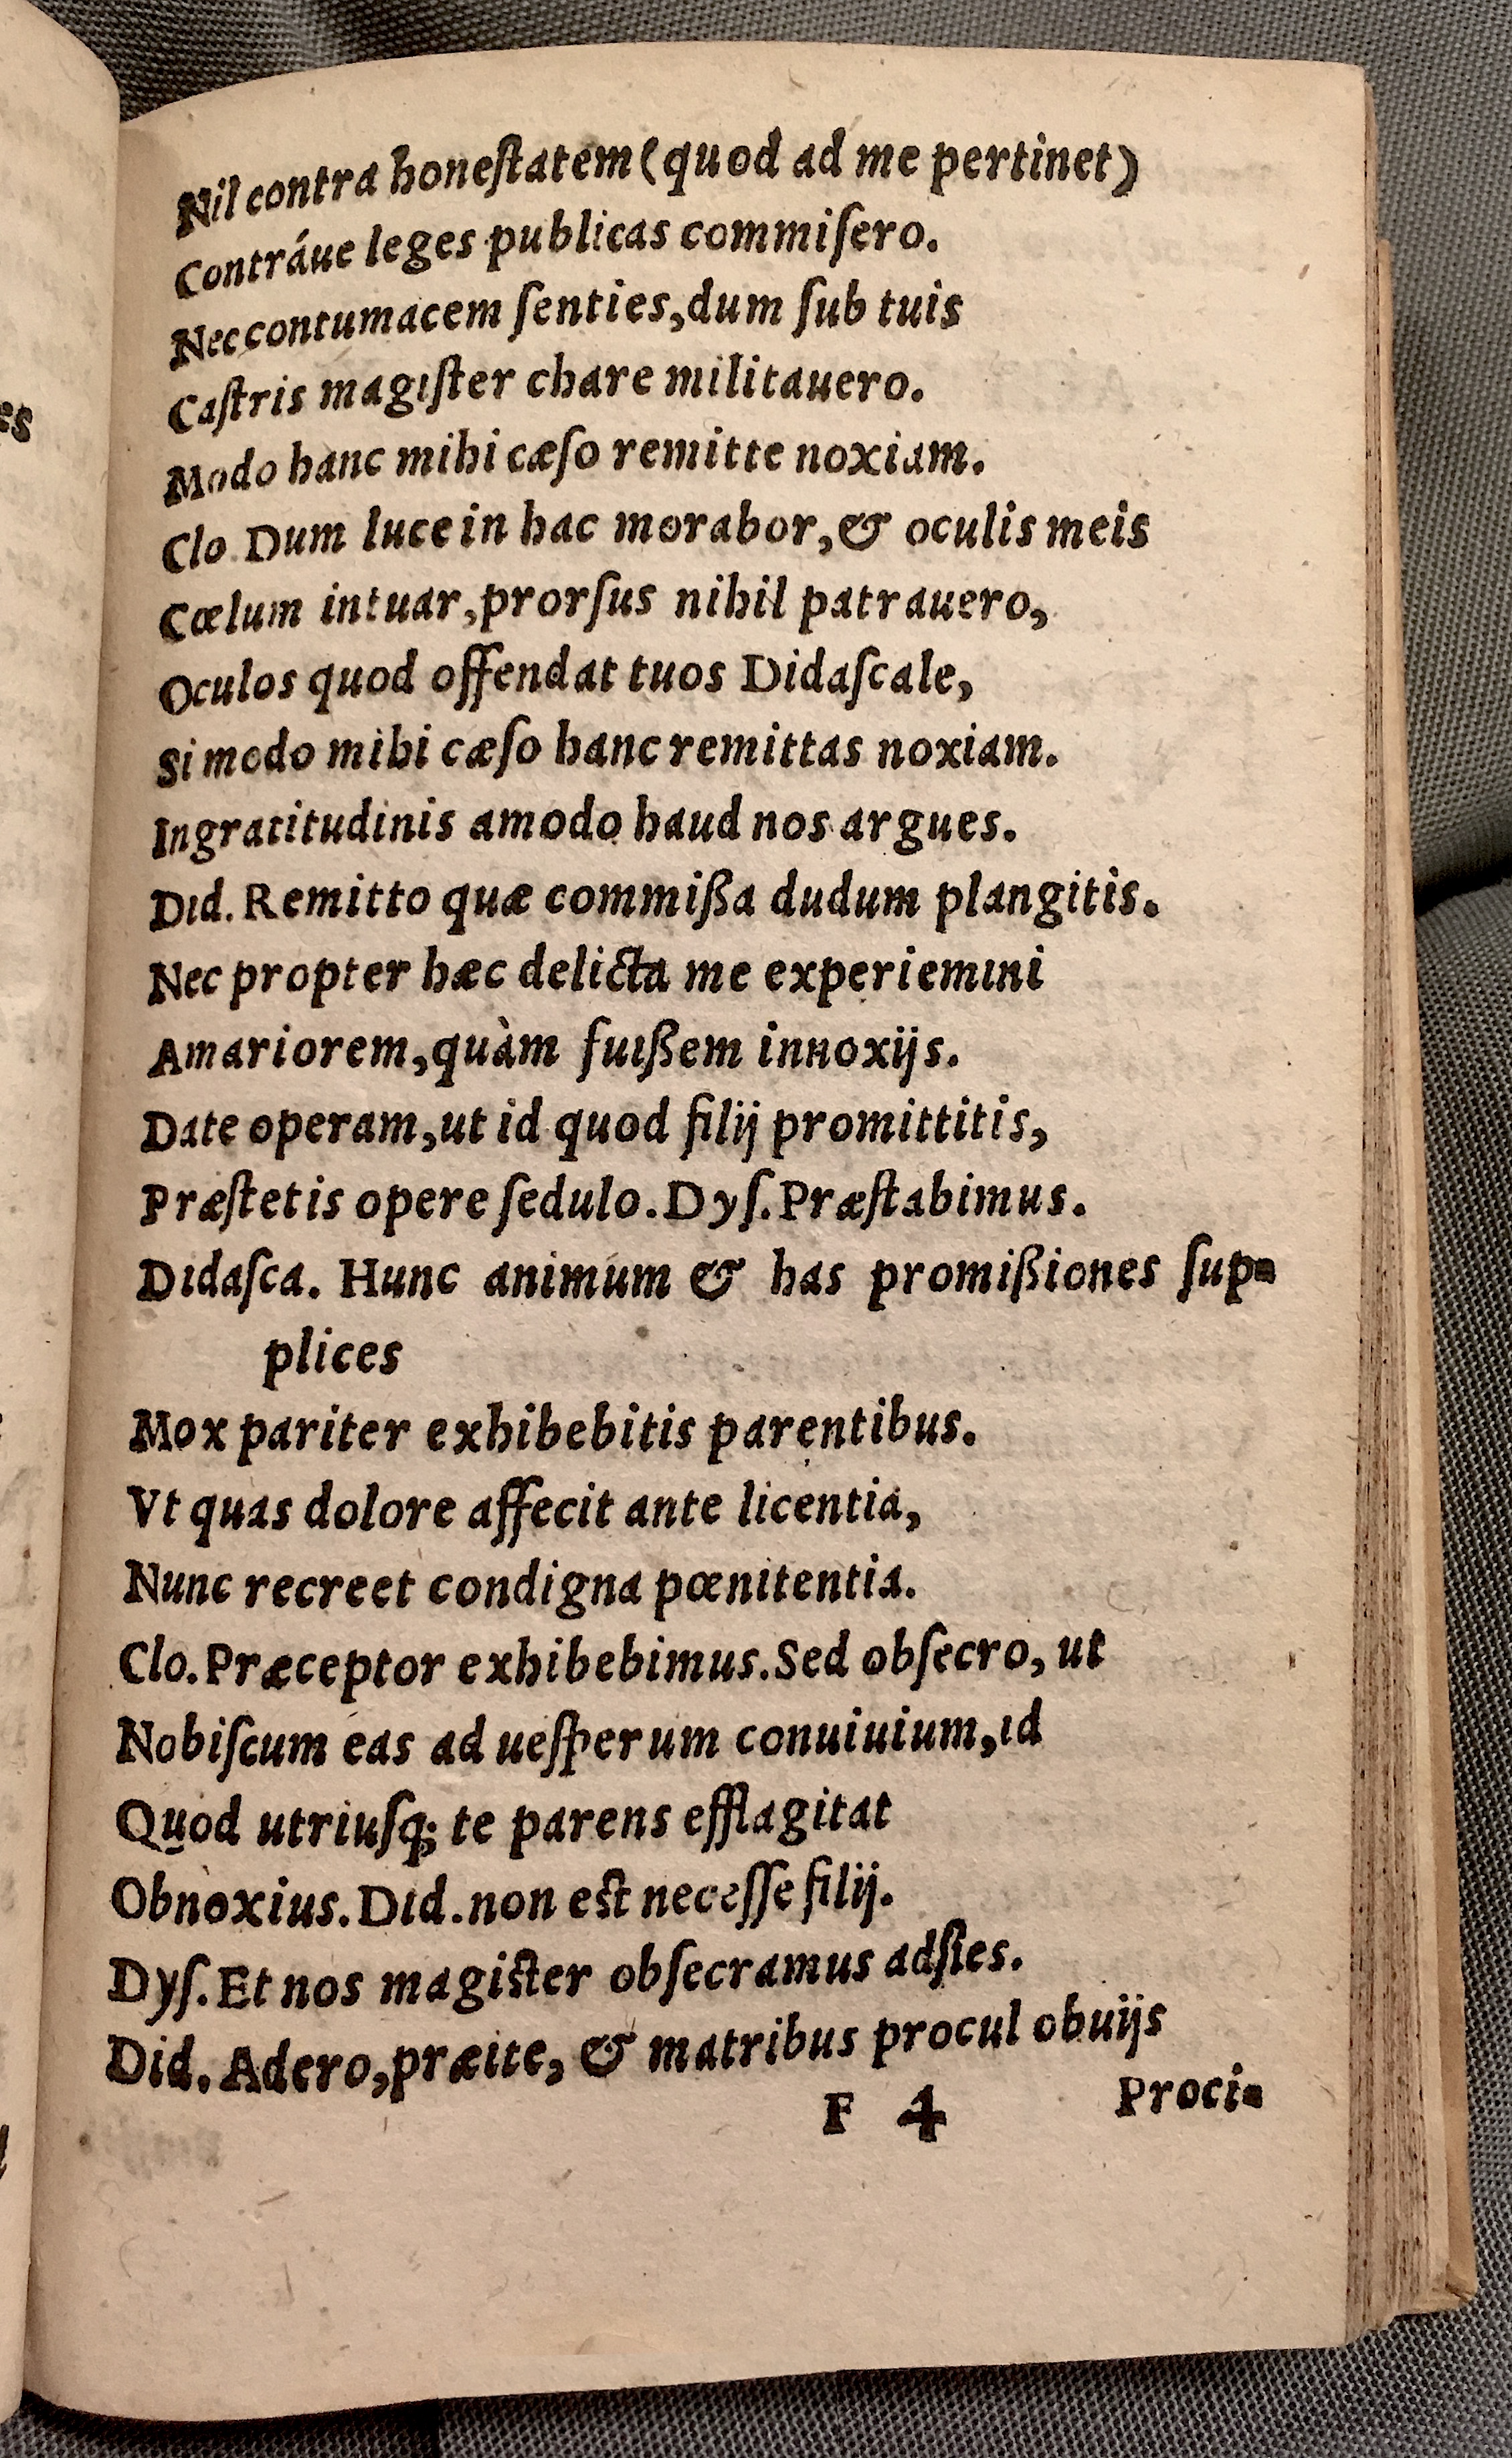 Nil contra honeſtatem (quod ad me pertinet)
Contráue leges publicas commiſero.
Nec contumacem ſenties, dum ſub tuis
Caſtris magiſter chare militauero.
Modo hanc mihi cæſo remitte noxiam.
Clo Dum luce in hac morabor, & oculis meis
Cœlum intuar, prorſus nihil patrauero,
Oculos quod offendat tuos Didaſcale,
Si modo mihi cæſo hanc remittas noxiam.
Ingratitudinis amodo haud nos argues.
Did. Remitto quæ commißa dudum plangitis.
Nec propter hæc delicta me experiemini
Amariorem, quàm fuißem innoxijs.
Date operam, ut id quod filij promittitis,
Præſtetis opere ſedulo. Dyſ. Præſtabimus.
Didaſca. Hunc animum & has promißiones ſup-
plices
Mox pariter exhibebitis parentibus.
Vt quas dolore affecit ante licentia,
Nunc recreet condigna pœnitentia.
Clo. Præceptor exhibebimus. Sed obſecro, ut
Nobiſcum eas ad ueſperum conuiuium, id
Quod utriuſq; te parens efflagitat
Obnoxius. Did. non eſt neceſſe filij.
Dyſ. Et nos magiſter obſecramus adſies.
Did. Adero, præite, & matribus procul obuijs
F 4 Proci-
es